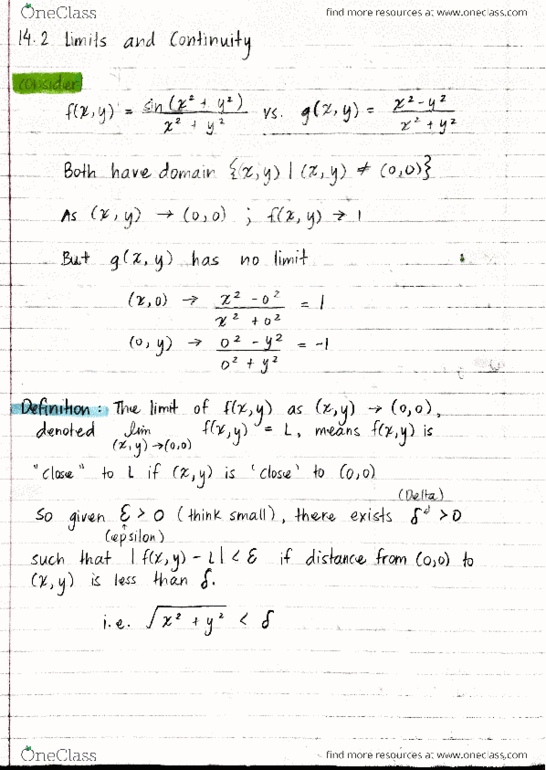 OneClass find more resources at www.oneclass.com
14.2 Limits and Continuity
Consider
f(x,y) = sin(x² + y²) / x² + y² vs. g(x,y) = x² - y² / x² + y²
Both have domain {(x,y) | (x,y) ≠ (0,0)}
As (x,y) → (0,0) ; f(x,y) → 1
But g(x,y) has no limit
(x,0) → x² - 0² / x² + 0² = 1
(0,y) → 0² - y² / 0² + y² = -1
Definition: The limit of f(x,y) as (x,y) → (0,0),
denoted lim (x,y)→(0,0) f(x,y) = L, means f(x,y) is
"close" to L if (x,y) is 'close' to (0,0)
(Delta)
So given ε > 0 (think small), there exists δ > 0
(epsilon)
such that |f(x,y) - L| < ε if distance from (0,0) to
(x,y) is less than δ.
i.e. √x² + y² < δ
OneClass find more resources at www.oneclass.com